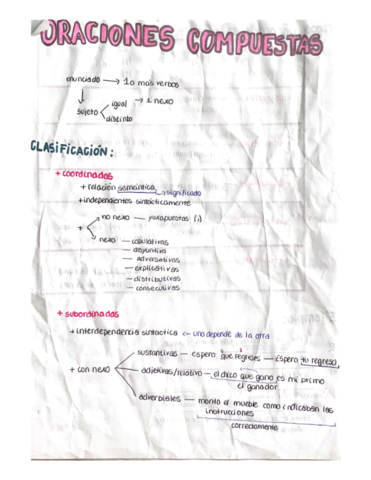 ORACIONES COMPUESTAS
enunciado → 1 o mas verbos
sujeto igual → 1 nexo
distinto
CLASIFICACIÓN:
+ coordinadas
+ relación semántica → significado
+ independientes sintácticamente
+ no nexo — yuxapuestas (,)
nexo — copulativas
— disyuntiva
— adversativas
— explicativas
— distributivas
— consecutivas
+ subordinadas
+ interdependencia sintactica ← uno depende de la otra
+ con nexo
sustantivas — espero que regreses — Espero tu regreso
adjetivas/relativo — el chico que gano es mi primo
el ganador
adverbiales — monto el mueble como indicaban las instrucciones
correctamente